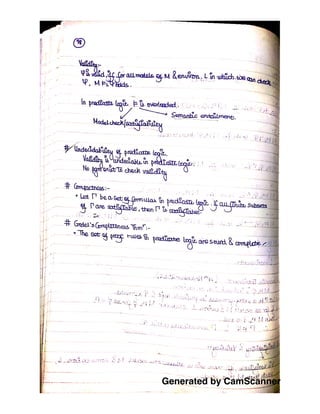 Validity:-
Ψ is valid iff for all models of M & environ. L in which we can check
Ψ, M ⊨ Ψ holds.
In predicate logic ⊨ is overloaded.
→ Semantic entailment.
Model check/satisfiability
# Undecidability of predicate logic
Validity is undecidable in predicate logic.
No algorithm to check validity
# Compactness:-
• Let Γ be a set of formulas in predicate logic. If all finite subsets
of Γ are satisfiable, then Γ is satisfiable.
# Godel's Completeness Thm:-
• The set of proof rules in predicate logic are sound & complete.
Generated by CamScanner